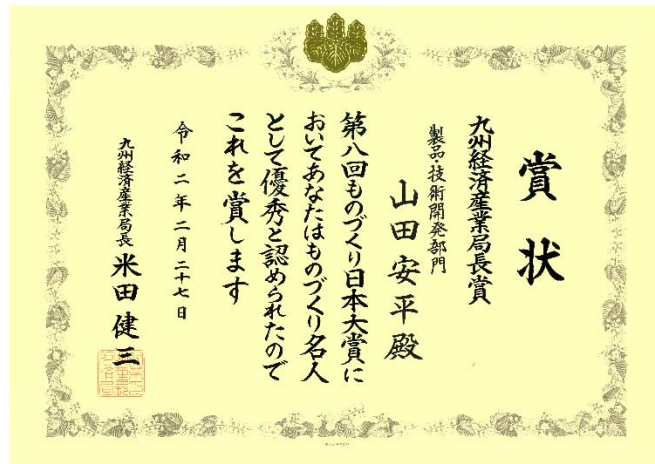 賞状
九州経済産業局長賞
製品・技術開発部門
山田安平殿
第八回ものづくり日本大賞に
おいてあなたはものづくり名人
として優秀と認められたので
これを賞します
令和二年二月二十七日
九州経済産業局長 米田健三